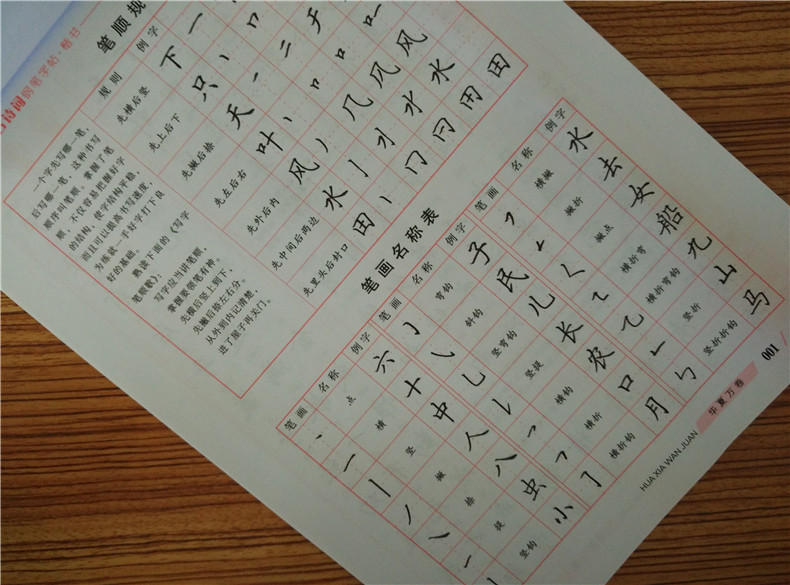 诗词钢笔字帖·楷书
笔顺规
一个字先写哪一笔,
后写哪一笔,这种书写
顺序叫笔顺。掌握了笔
顺,不仅容易把握好字
的结构,使字结构平稳,
而且可以提高书写速度,
为练就一手好字打下良
好的基础。
熟读下面的《写字
笔顺歌》:
写字应当讲笔顺,
掌握要领笔有神。
先横后竖上到下,
先撇后捺左右分。
从外到内记清楚,
进了屋子再关门。
规则 例字
先横后竖 下 一
先上后下 只 丶 口 口一
先撇后捺 天 一 二 于
先左后右 叶 丨 口 口
先外后内 风 丿 几 风 风
先中间后两边 水 亅 水 水
先里头后封口 田 丨 冂 冂 田 田
笔画名称表
笔画 名称 例字 笔画 名称 例字 笔画 名称 例字
丶 点 六 弯钩 子 横撇 水
一 横 十 斜钩 民 撇折 去
丨 竖 中 乚 竖弯钩 儿 撇点 女
丿 撇 人 竖提 长 横折弯 船
捺 八 横钩 农 乙 横折弯钩 九
提 虫 横折 口 竖折 山
亅 竖钩 小 横折钩 月 竖折折钩 马
HUA XIA WAN JUAN
华夏万卷
001